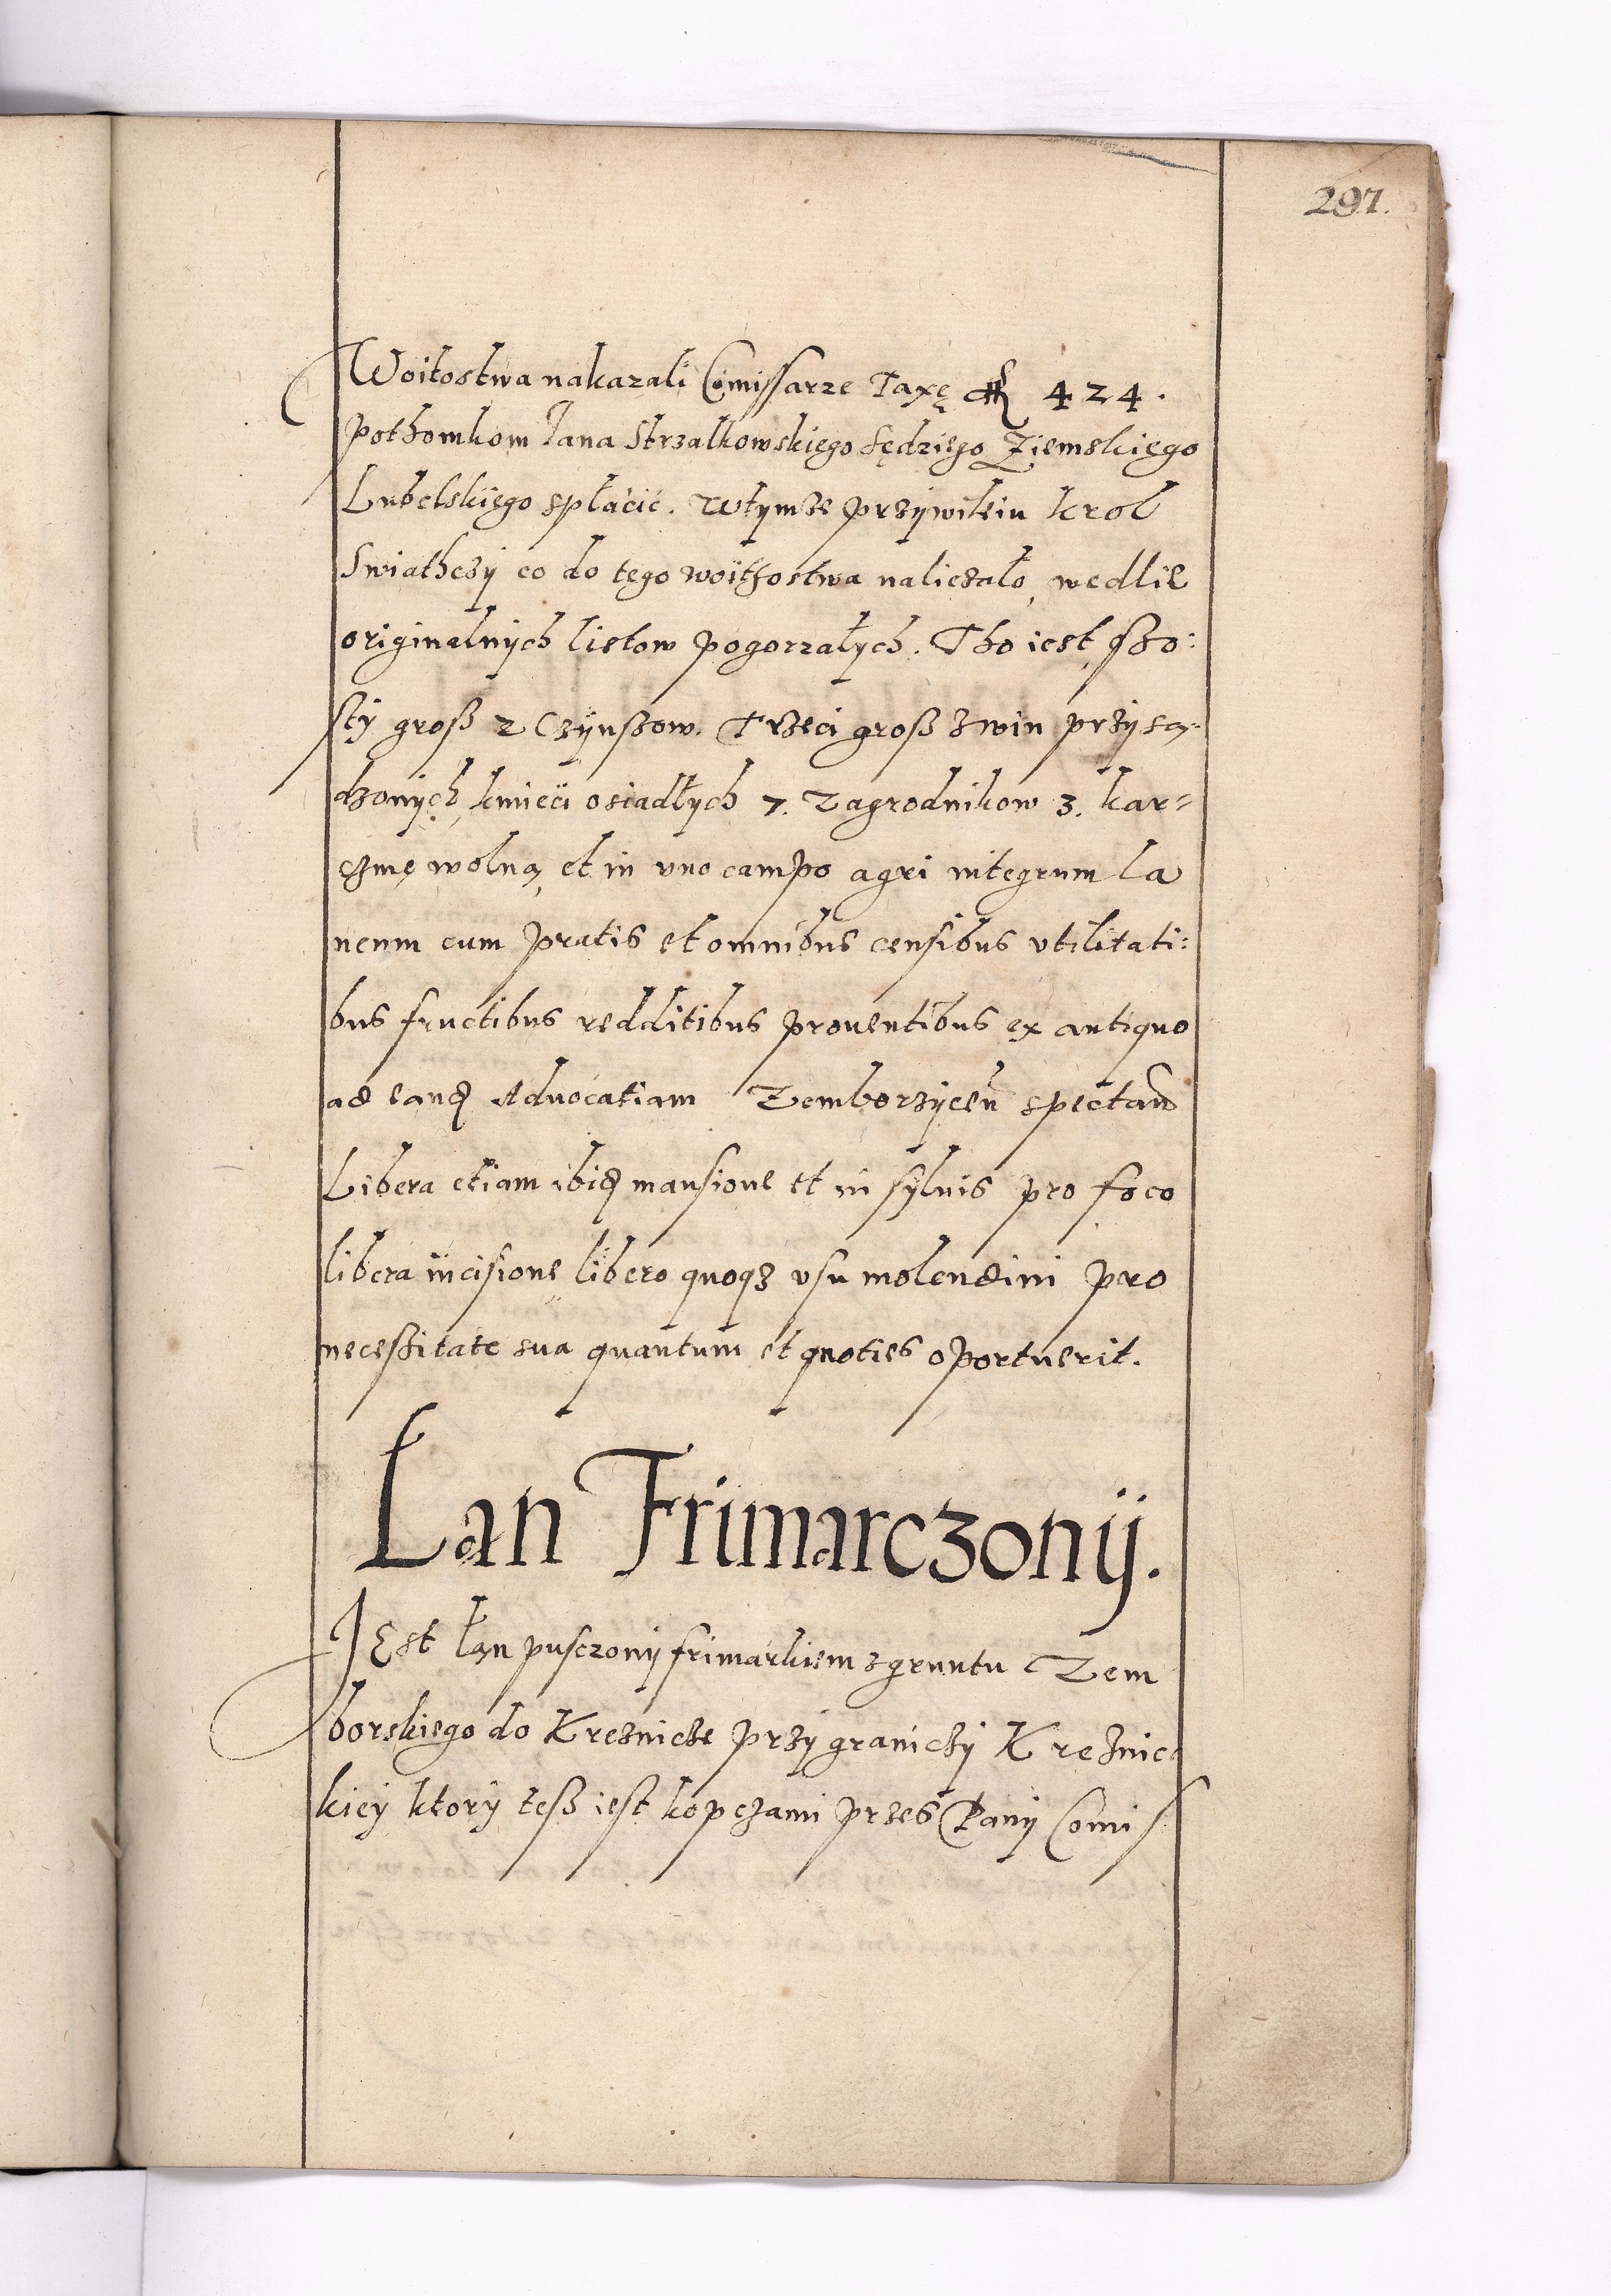 297.
Woitostwa nakazali Comissarze Taxę 424.
pothomkom Iana Strzalkowskiego Sędziego Ziemskiego
Lubelskiego spłacić. Wtymze przywileiu krol
Swiathczy co do tego woithostwa naliezało, wedlie
originalnych listow pogorzałych. Tho iest szo:
sty grosz z Czynszow. Trzeci grosz zwin przysą-
dzonych, kmieci osiadłych 7. Zagrodnikow 3. kar=
czmę wolną, et in vno campo agri integrum la
neum cum pratis et omnibus censibus vtilitati:
bus fructibus redditibus prouentibus ex antiquo
ad eand Aduocatiam Zemborzycen spectan
Libera etiam ibid mansione et in syluis pro foco
libera incisione libero quoqz vsu molendini pro
necessitate sua quantum et quoties oportuerit.
Łan Frimarczony.
IEst łan pusczony frimarkiem zgruntu Zem
borskiego do Kreznicze przy graniczy Kreznic
kiey ktory tesz iest kopczami przes Pany Comis